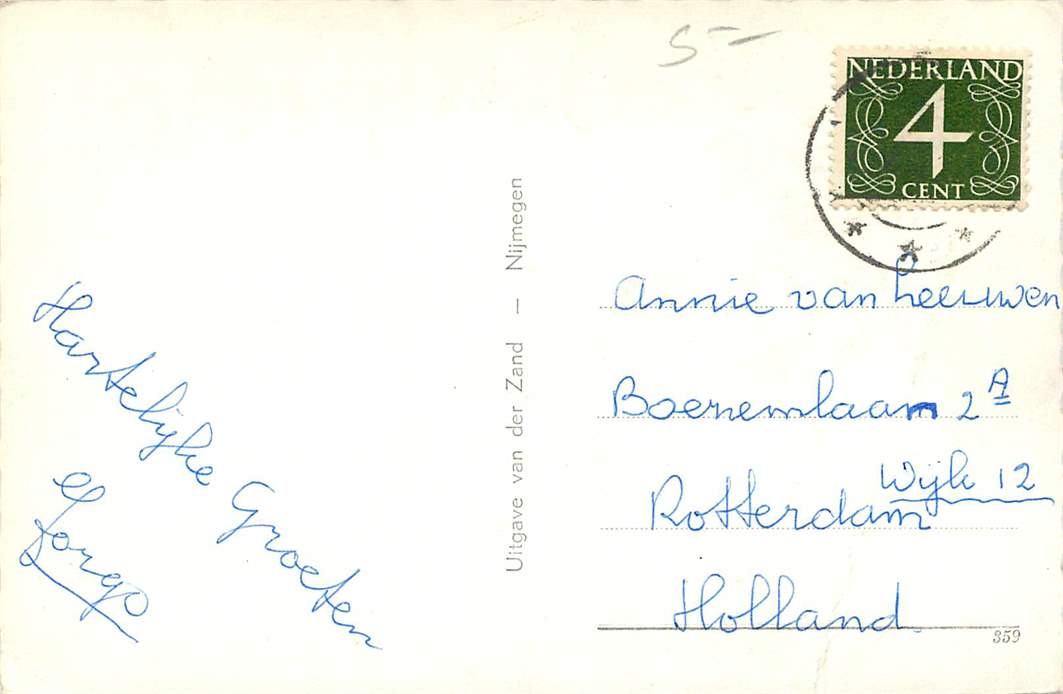 5-
NEDERLAND
4
CENT
Hartelijke Groeten
Uitgave van der Zand — Nijmegen
Annie van Leeuwen
Boerenlaan 2A
Wijk 12
Rotterdam
Holland.
359